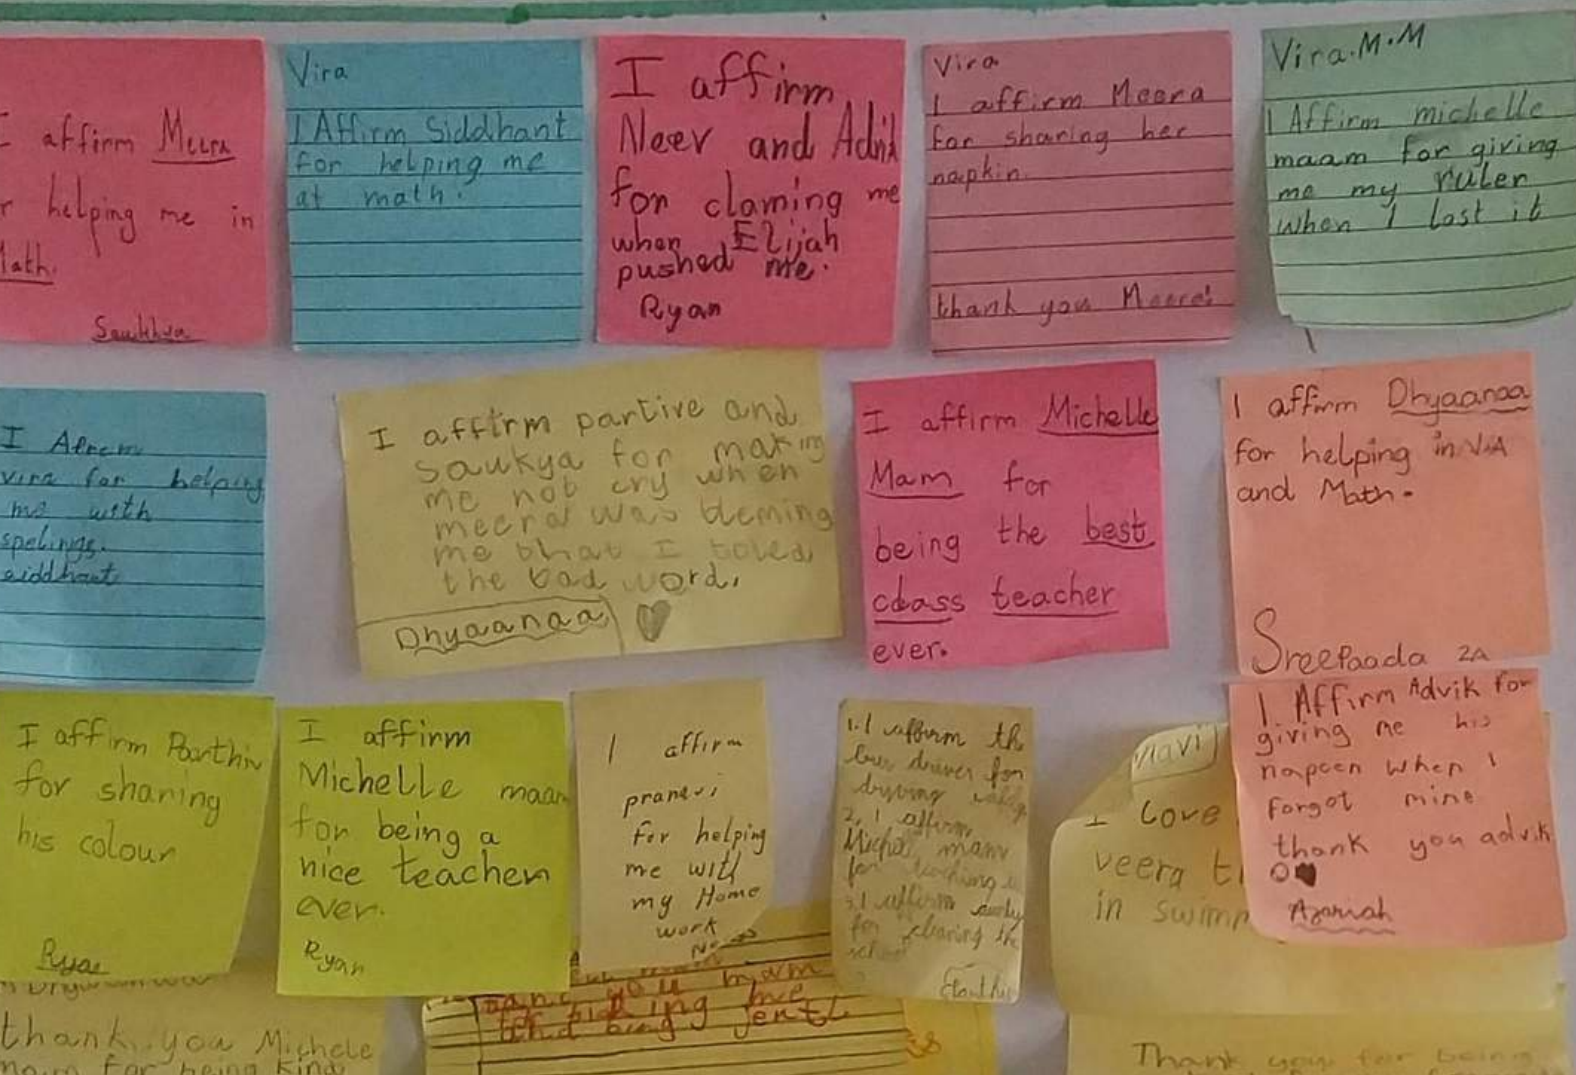 I affirm Meera
r helping me in
Math.
Saukhya
Vira
I Affirm Siddhant
for helping me
at math.
I affirm
Neev and Advik
for claming me
when Elijah
pushed me.
Ryan
Vira
I affirm Meera
for sharing her
napkin.
thank you Meera!
Vira.M.M
I Affirm michelle
maam for giving
me my ruler
when I lost it
I
vira for helping
me with
spelings.
siddhant
I affirm partive and
saukya for making
me not cry when
meera was bleming
me that I toled
the bad word.
Dhyaanaa
I affirm Michelle
Mam for
being the best
class teacher
ever.
I affirm Dhyaanaa
for helping in VA
and Math.
Sreepaada 2A
I affirm Parthiv
for sharing
his colour
Ryan
I affirm
Michelle maam
for being a
nice teacher
ever.
Ryan
I affirm
pranavi
for helping
me with
my Home
work
1. I affirm th
bus driver for
driving safely
2. I affirm
Michel mam
for teaching
3. I affirm
for cleaning the
school
I love
veera t
in swimm
I Affirm Advik for
giving me his
napcen when I
forgot mine
thank you advik
Azariah
thank you Michele
mam for being kind
you mam
for being me
and being gentl
Thank you for being